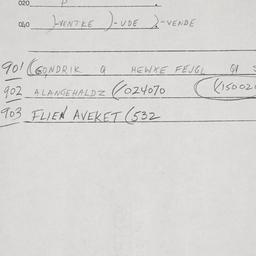 020 P
040 )-VENTKE )-UDE )-VENDE
901 (GONDRIK G HEWKE FEJGL GI
902 ALANGEHALDZ (024070 (15002
903 FLIEN AVEKET (532